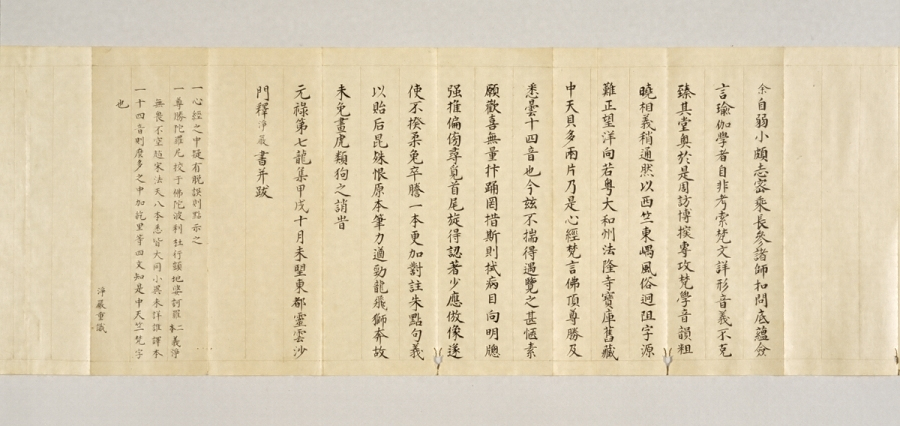 余自弱小頗志密乘長參諸師扣問底蘊僉
言瑜伽學者自非考索梵文詳形音義不克
臻其堂奧於是周訪博探專攻梵學音韻粗
曉相義稍通然以西竺東嵎風俗迥阻字源
難正望洋向若粵大和州法隆寺寶庫舊藏
中天貝多兩片乃是心經梵言佛頂尊勝及
悉曇十四音也今玆不揣得遇覽之甚愜素
願歡喜無量抃踊罔措斯則拭病目向明牕
强推偏傍尋覓首尾旋得認著少應倣像遂
使不揆柔兔卒謄一本更加對註朱點句義
以貽后昆殊恨原本筆力遒勁龍飛獅奔故
未免畫虎類狗之誚耳
元祿第七龍集甲戌十月未望東都靈雲沙
門釋淨嚴書并跋
一心經之中疑有脫誤則點示之
一尊勝陀羅尼校于佛陀波利杜行顗地婆訶羅二本義淨
無畏不空趙宋法天八本悉皆大同小異未詳誰譯本
一十四音則麼多之中加紇里等四文知是中天竺梵字
也
淨嚴重識